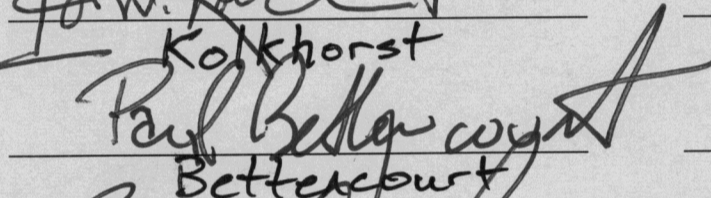 Kolkhorst
Paul Bettencourt
Bettencourt